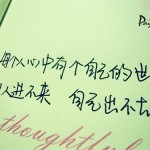 Pu
每个人心中有个自己的世
人进不来 自己出不去
thoughtful